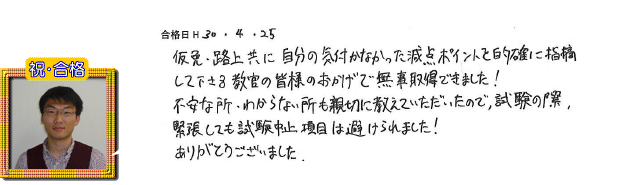 祝・合格
合格日 H 30 . 4 . 25
仮免・路上共に自分の気付かなかった減点ポイントを的確に指摘
して下さる教官の皆様のおかげで無事取得できました!
不安な所・わからない所も親切に教えていただいたので、試験の際、
緊張しても試験中止項目は避けられました!
ありがとうございました.